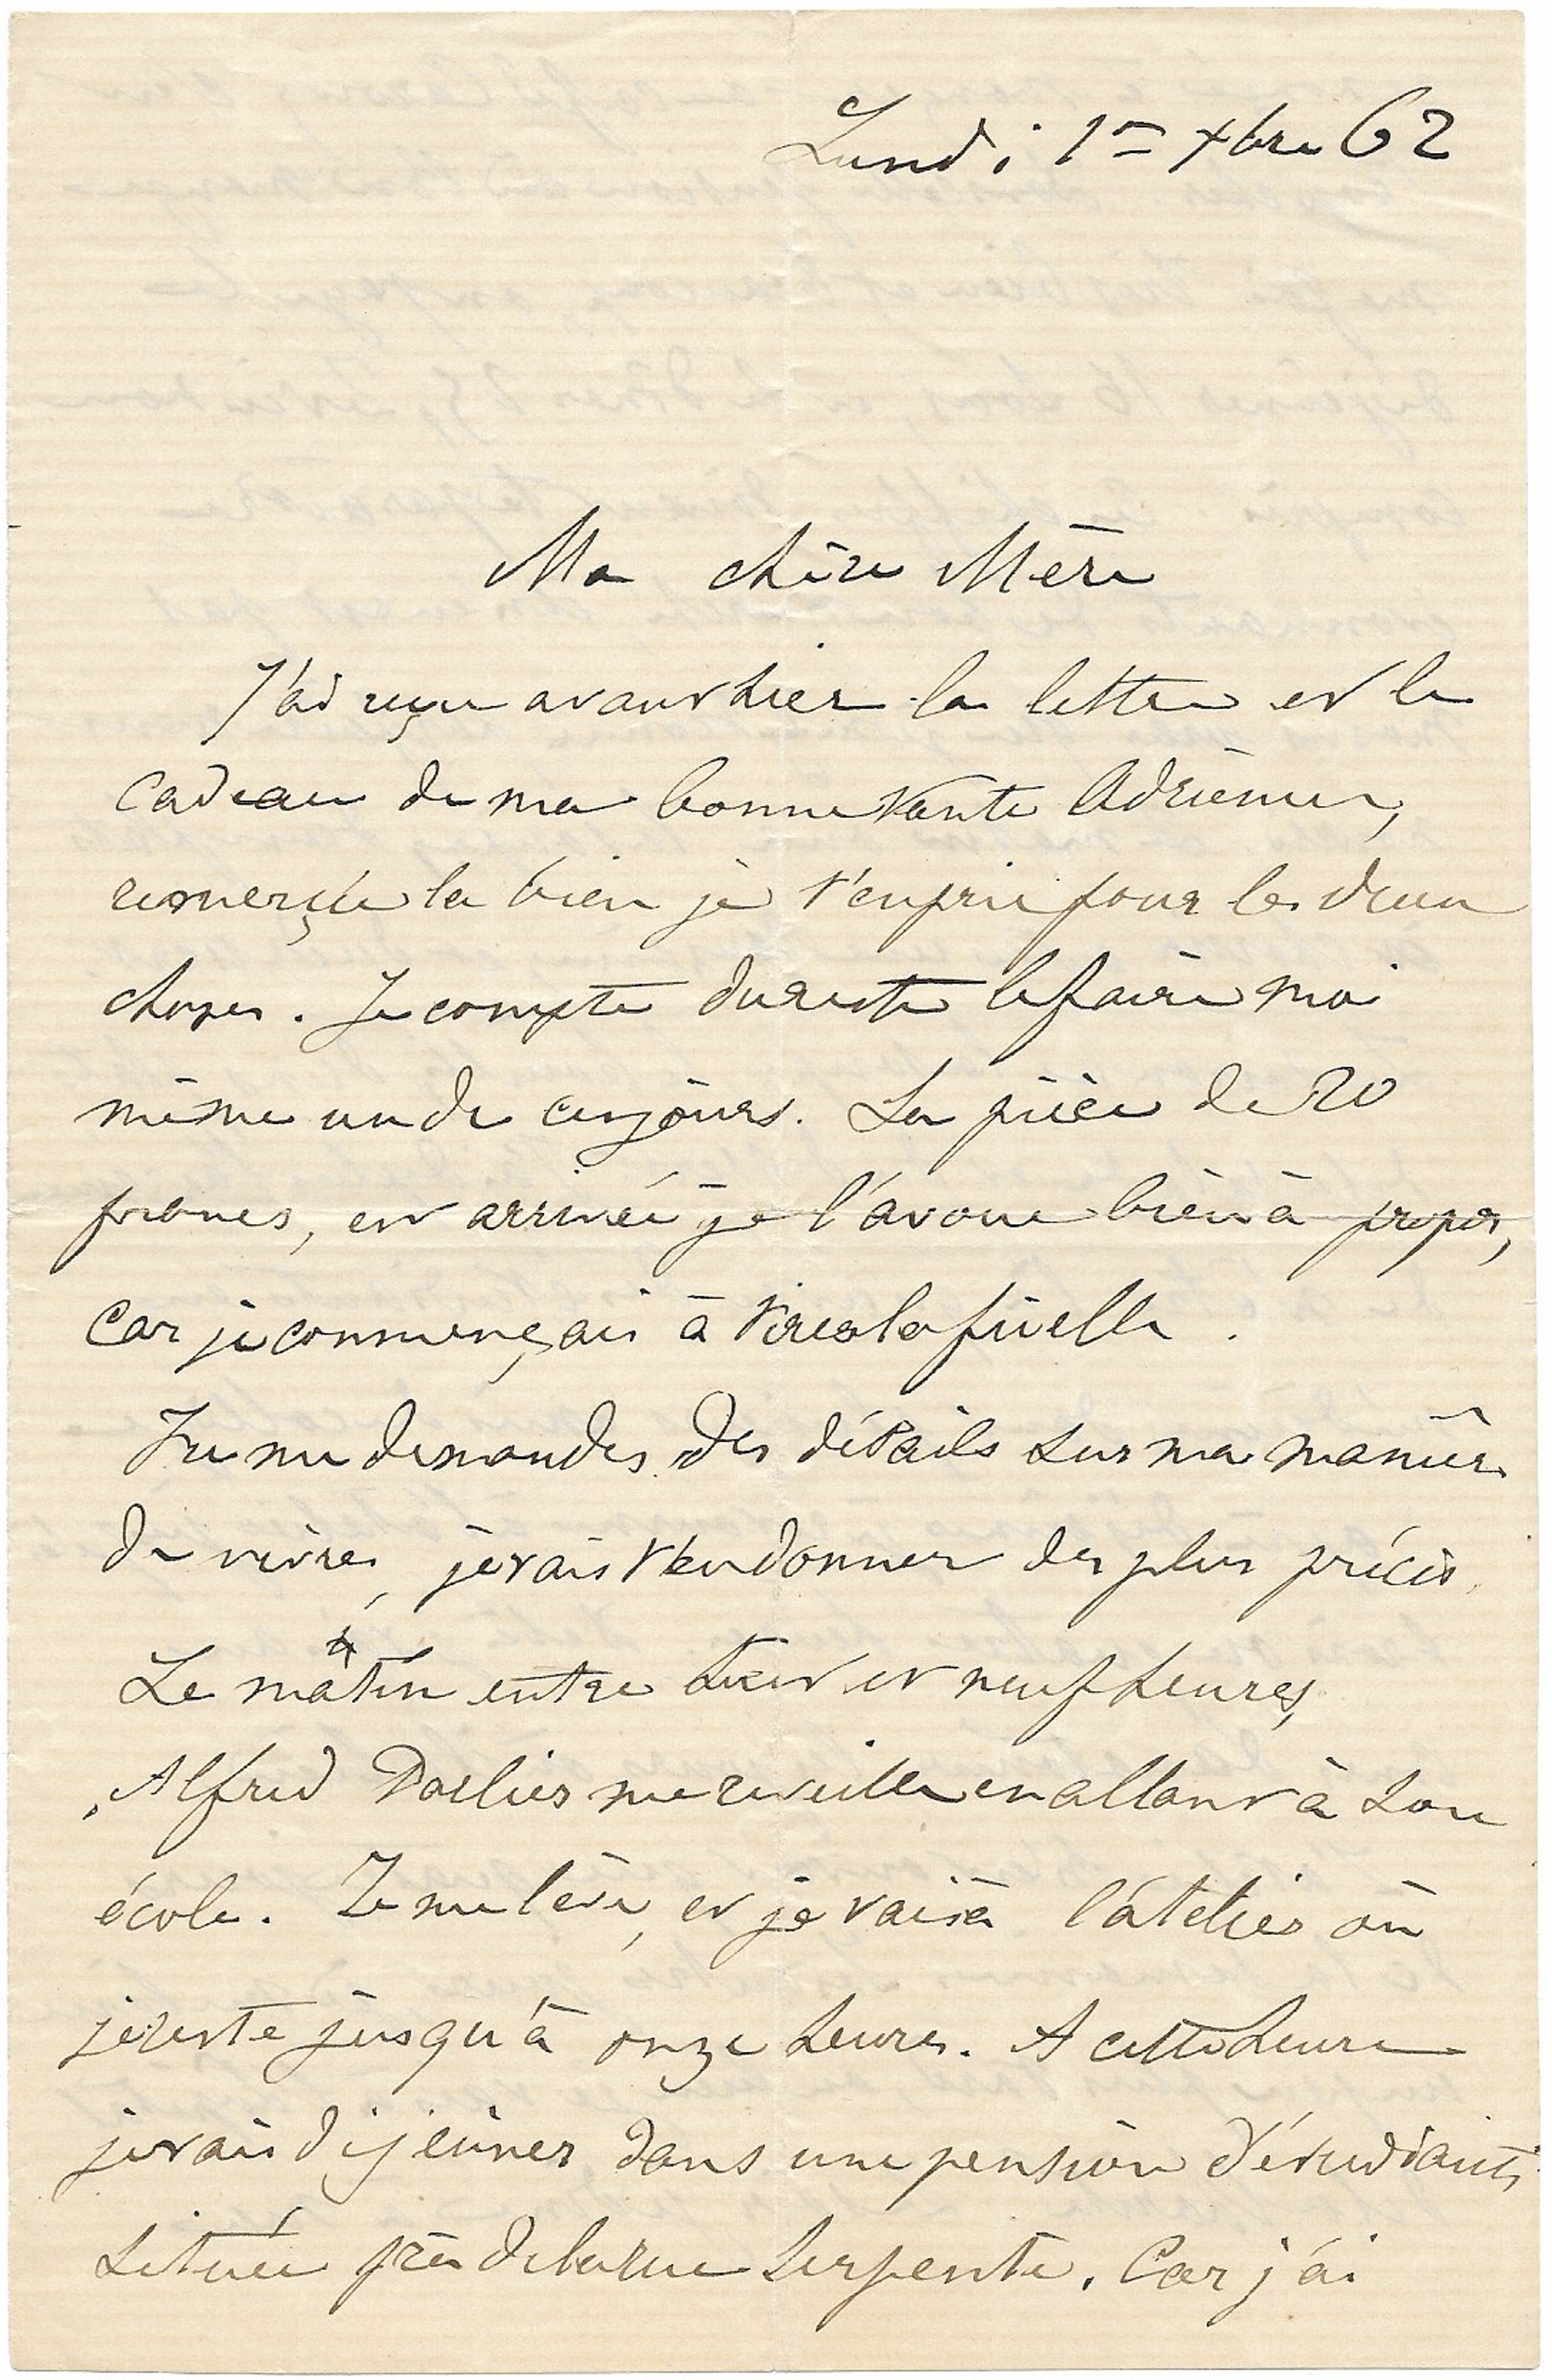 Lundi 1er Xbre 62
Ma chère Mère
J'ai reçu avant hier la lettre et le
cadeau de ma bonne tante Adrienne,
remerçie la bien je t'en prie pour les deux
choses. Je compte du reste le faire moi
même un de ces jours. La pièce de 20
francs, est arrivée je l'avoue bien à propos,
car je commençais à tirer la ficelle.
Tu me demandes des détails sur ma manière
de vivre, je vais t'en donner des plus précis.
Le matin entre huit et neuf heures,
Alfred Parlier me reveille en allant à son
école. Je me lève, et je vais à l'atelier où
je reste jusqu'à onze heures. A cette heure
je vais déjeûner dans une pension d'étudiants
située près de la rue Serpente. Car j'ai